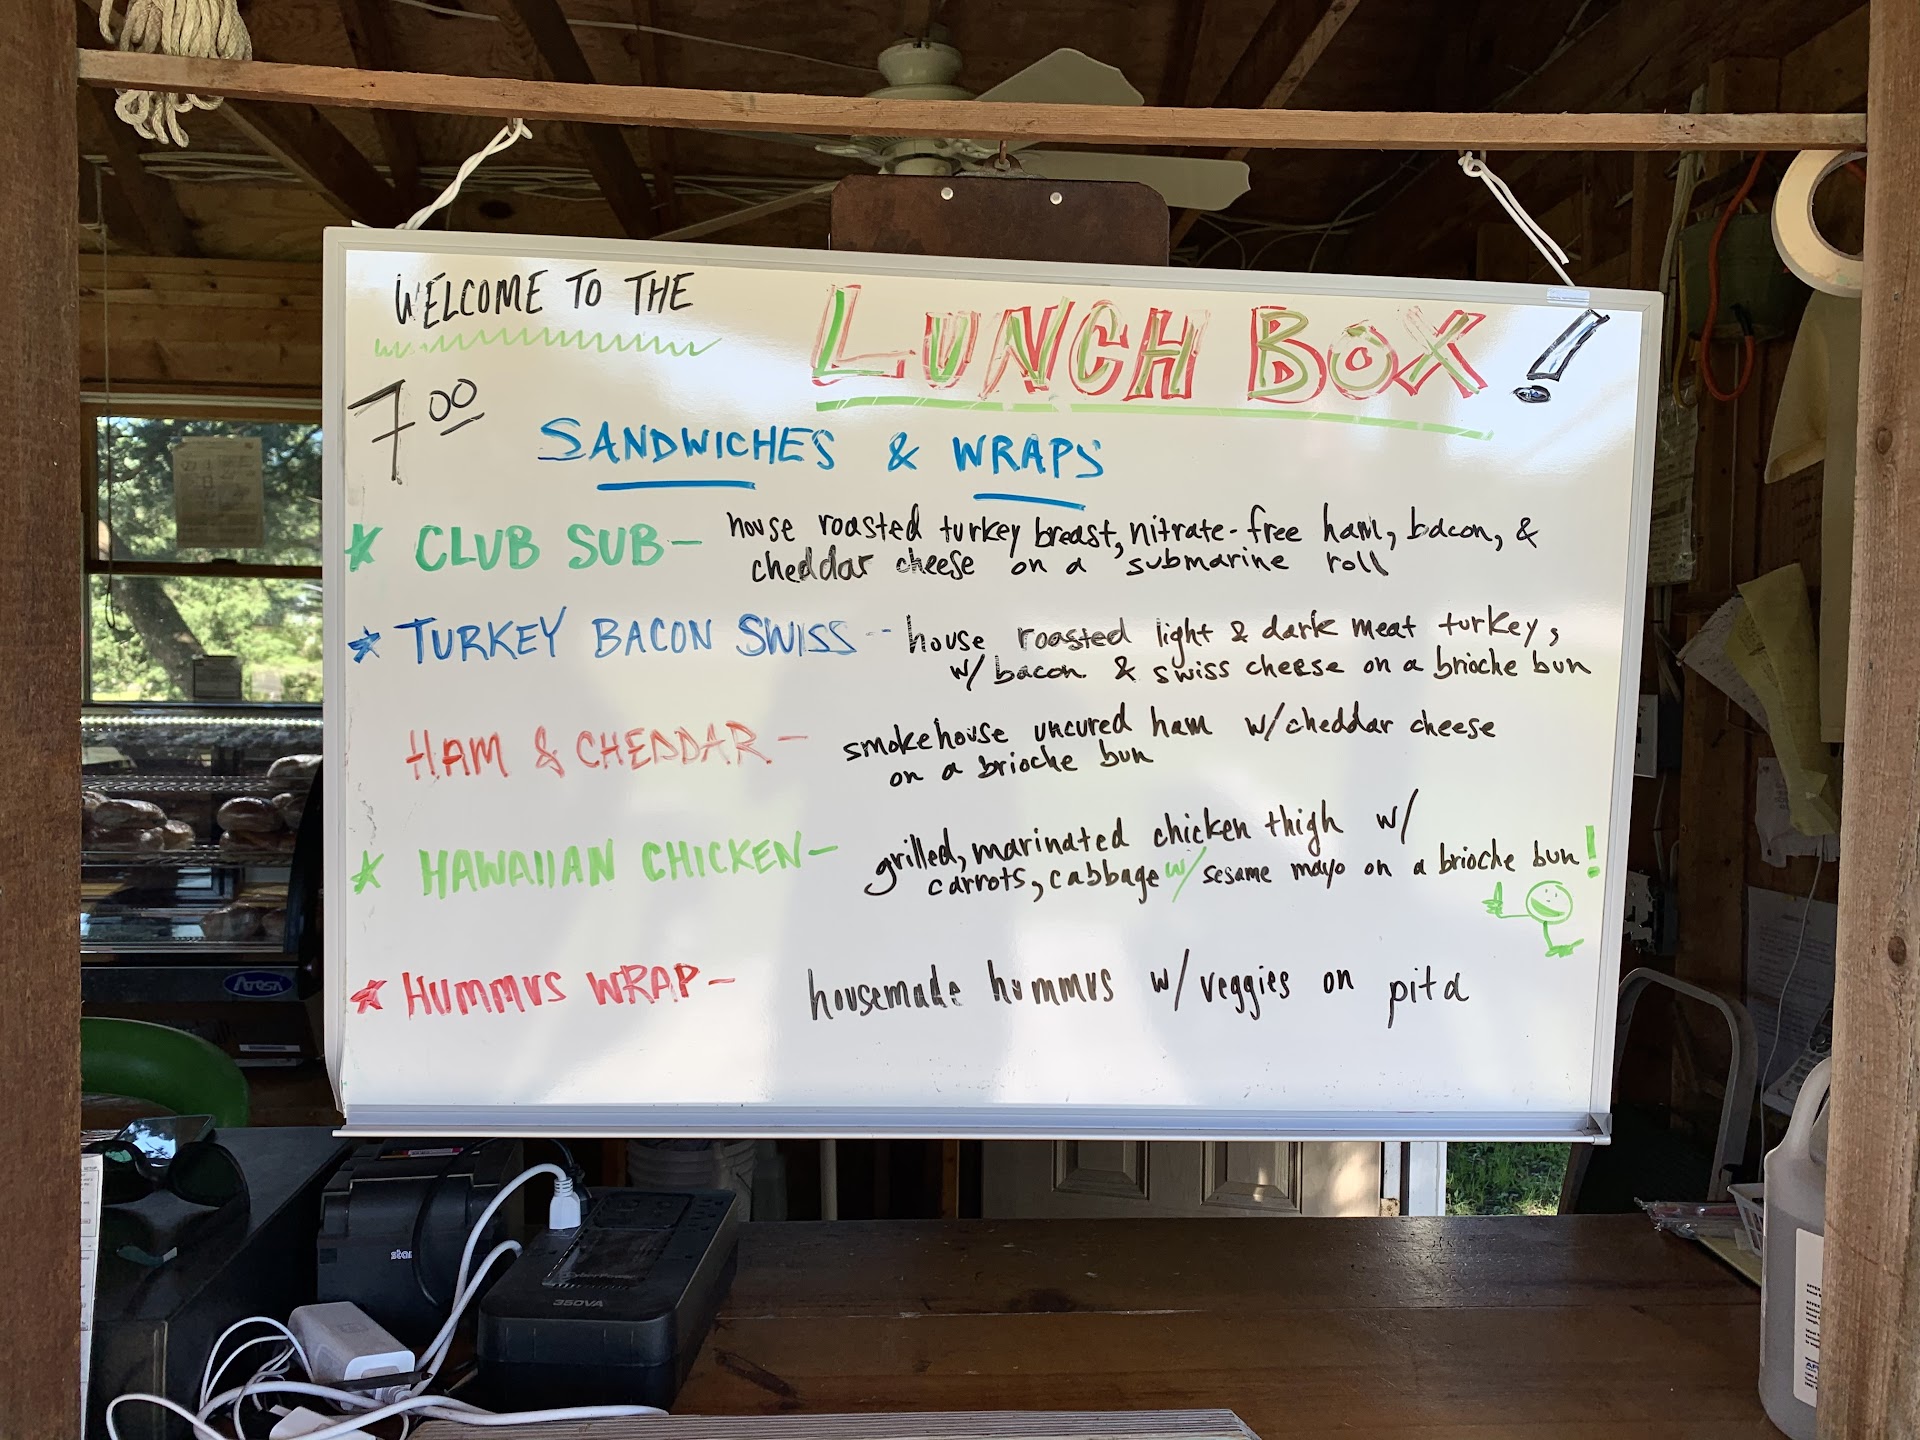 WELCOME TO THE
LUNCH BOX!
7.00
SANDWICHES & WRAPS
★ CLUB SUB - house roasted turkey breast, nitrate-free ham, bacon, &
cheddar cheese on a submarine roll
★ TURKEY BACON SWISS -- house roasted light & dark meat turkey,
w/ bacon & swiss cheese on a brioche bun
HAM & CHEDDAR - smokehouse uncured ham w/ cheddar cheese
on a brioche bun
★ HAWAIIAN CHICKEN - grilled, marinated chicken thigh w/
carrots, cabbage w/ sesame mayo on a brioche bun!
★ HUMMUS WRAP - housemade hummus w/ veggies on pita
Atosa
star
350VA